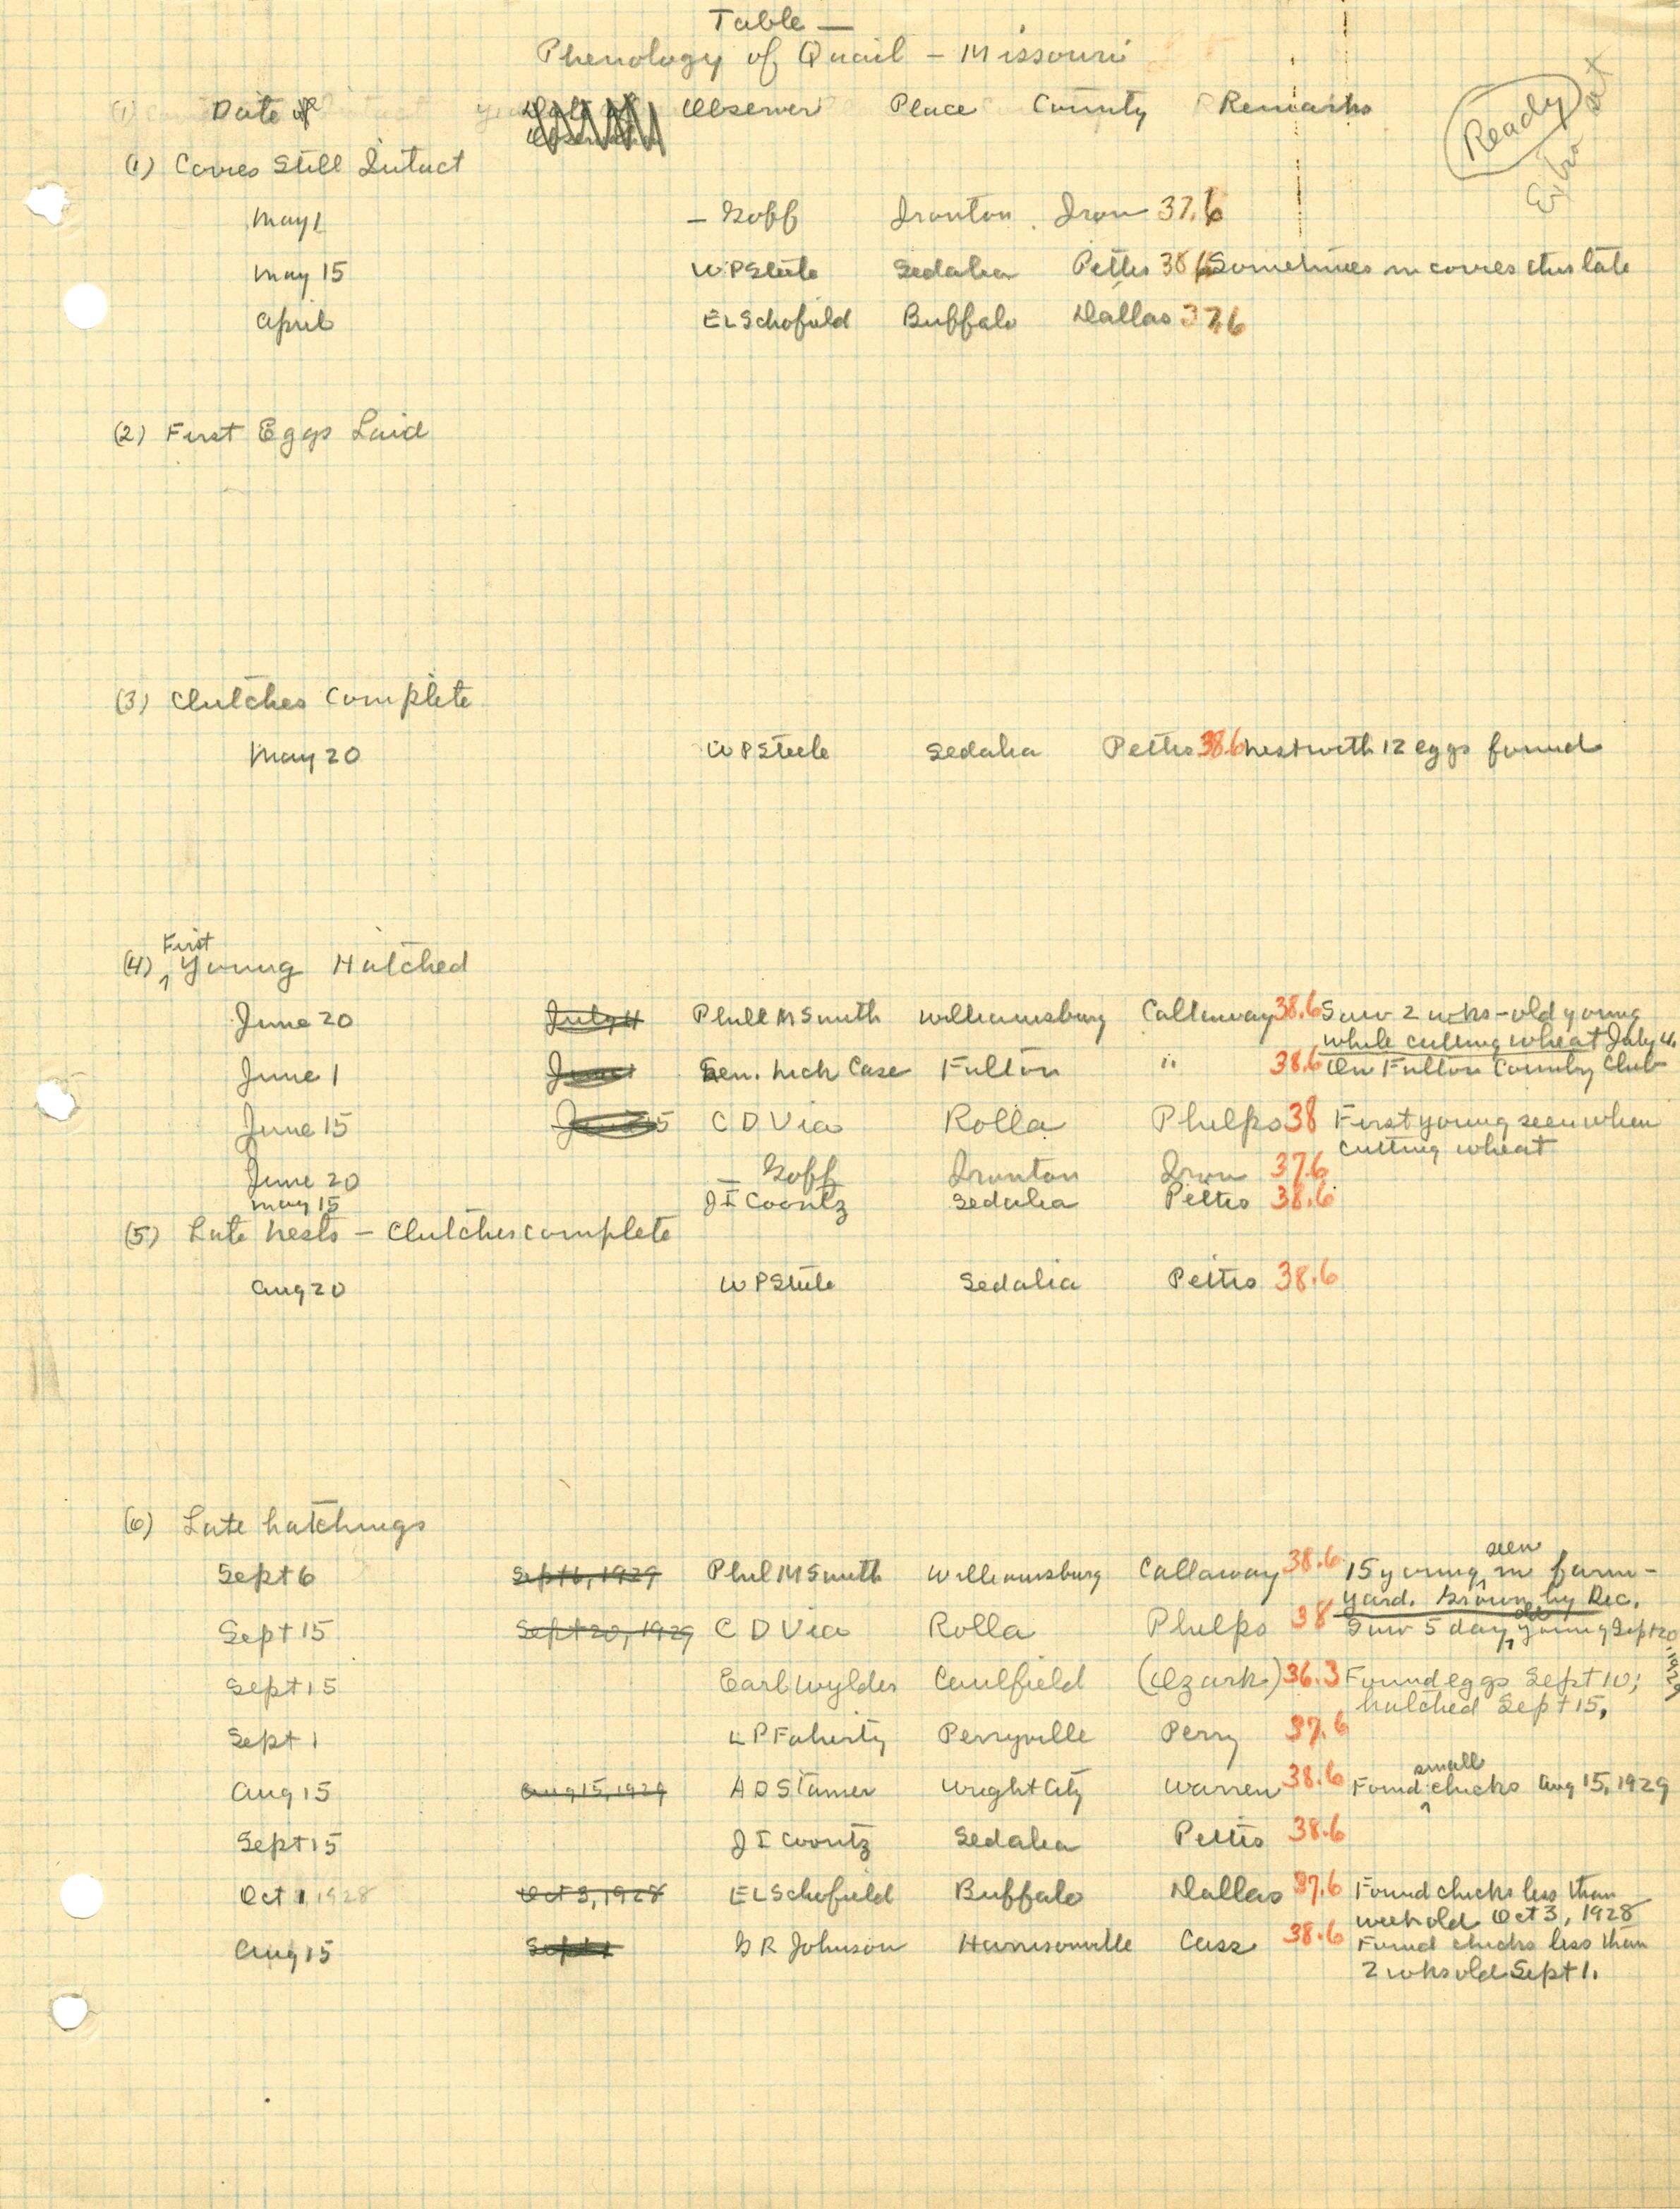 Table —
Phenology of Quail – Missouri
Date of Observer Place County Remarks
Ready
(1) Covies Still Intact
May 1 – Goff Ironton Iron 37.6
May 15 W P Steele Sedalia Pettis 38.6 Sometimes in covies this late
April E L Schofield Buffalo Dallas 37.6
(2) First Eggs Laid
(3) Clutches Complete
May 20 W P Steele Sedalia Pettis 38.6 nest with 12 eggs found
First
(4) ^ Young Hatched
June 20 July 4 Phill M Smith Williamsburg Callaway 38.6 Saw 2 wks-old young
while cutting wheat July 4.
June 1 June 1 Sen. Nick Case Fulton " 38.6 On Fulton Country Club
June 15 June 15 C D Via Rolla Phelps 38 First young seen when
cutting wheat
June 20 – Goff Ironton Iron 37.6
May 15 J I Coontz Sedalia Pettis 38.6
(5) Late Nests – Clutches complete
Aug 20 W P Steele Sedalia Pettis 38.6
(6) Late hatchings
seen
Sept 6 Sept 6, 1929 Phil M Smith Williamsburg Callaway 38.6 15 young ^ in farm-
yard. Grown by Dec.
old
Sept 15 Sept 20, 1929 C D Via Rolla Phelps 38 Saw 5 day ^ young Sept 20
1929
Sept 15 Earl Wylder Caulfield (Ozark) 36.3 Found eggs Sept 10;
hatched Sept 15.
Sept 1 L P Faherty Perryville Perry 37.6
small
Aug 15 Aug 15, 1929 A D Stamer Wright City Warren 38.6 Found ^ chicks Aug 15, 1929
Sept 15 J I Coontz Sedalia Pettis 38.6
Oct 1, 1928 Oct 3, 1928 E L Schofield Buffalo Dallas 37.6 Found chicks less than
week old Oct 3, 1928
Aug 15 Sept 1 G R Johnson Harrisonville Cass 38.6 Found chicks less than
2 wks old Sept 1.